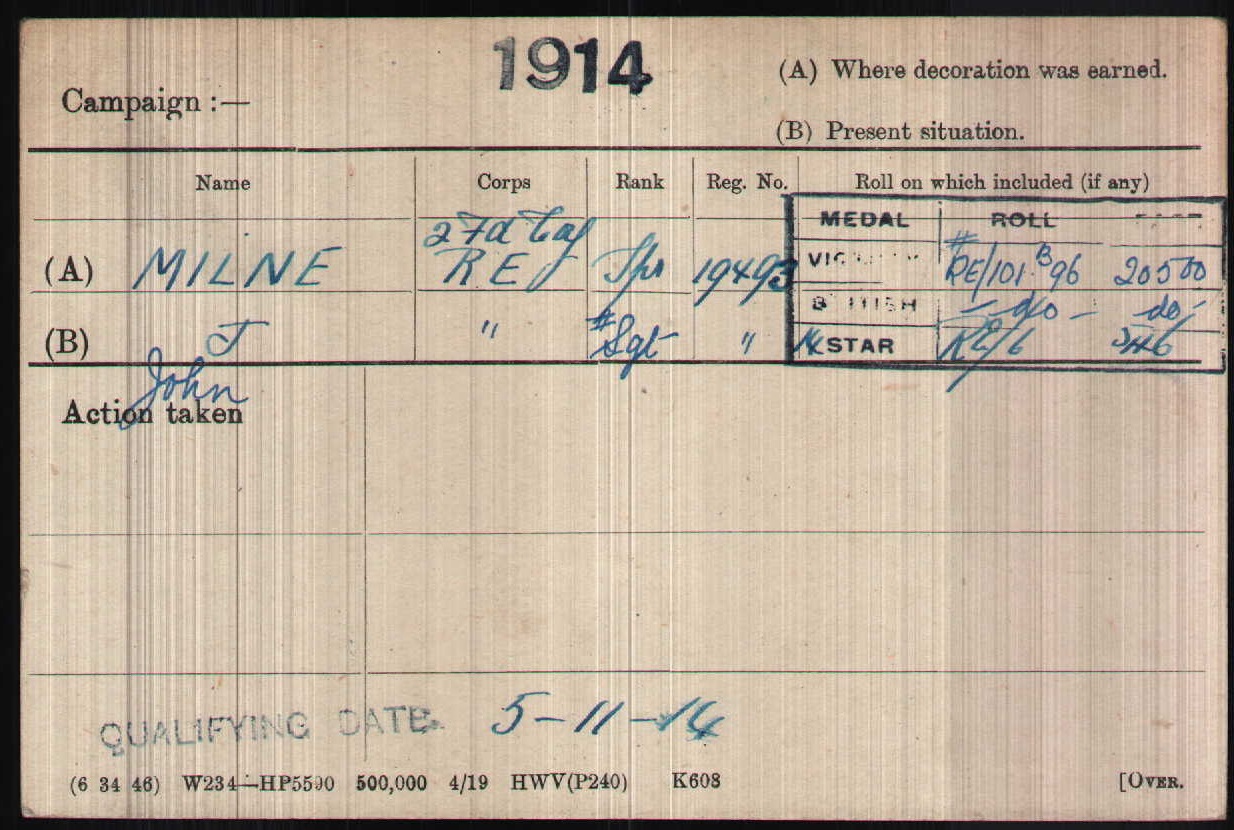 1914
(A) Where decoration was earned.
Campaign :—
(B) Present situation.
Name Corps Rank Reg. No. Roll on which included (if any)
MEDAL ROLL
2 Fd Coy
(A) MILNE R E Spr 19493 VICTORY RE/101 B96 20500
BRITISH — do — do -
(B) J " # Sgt " 14 STAR RE/6 346
John
Action taken
QUALIFYING DATE. 5-11-14
(6 34 46) W234—HP5590 500,000 4/19 HWV(P240) K608 [OVER.